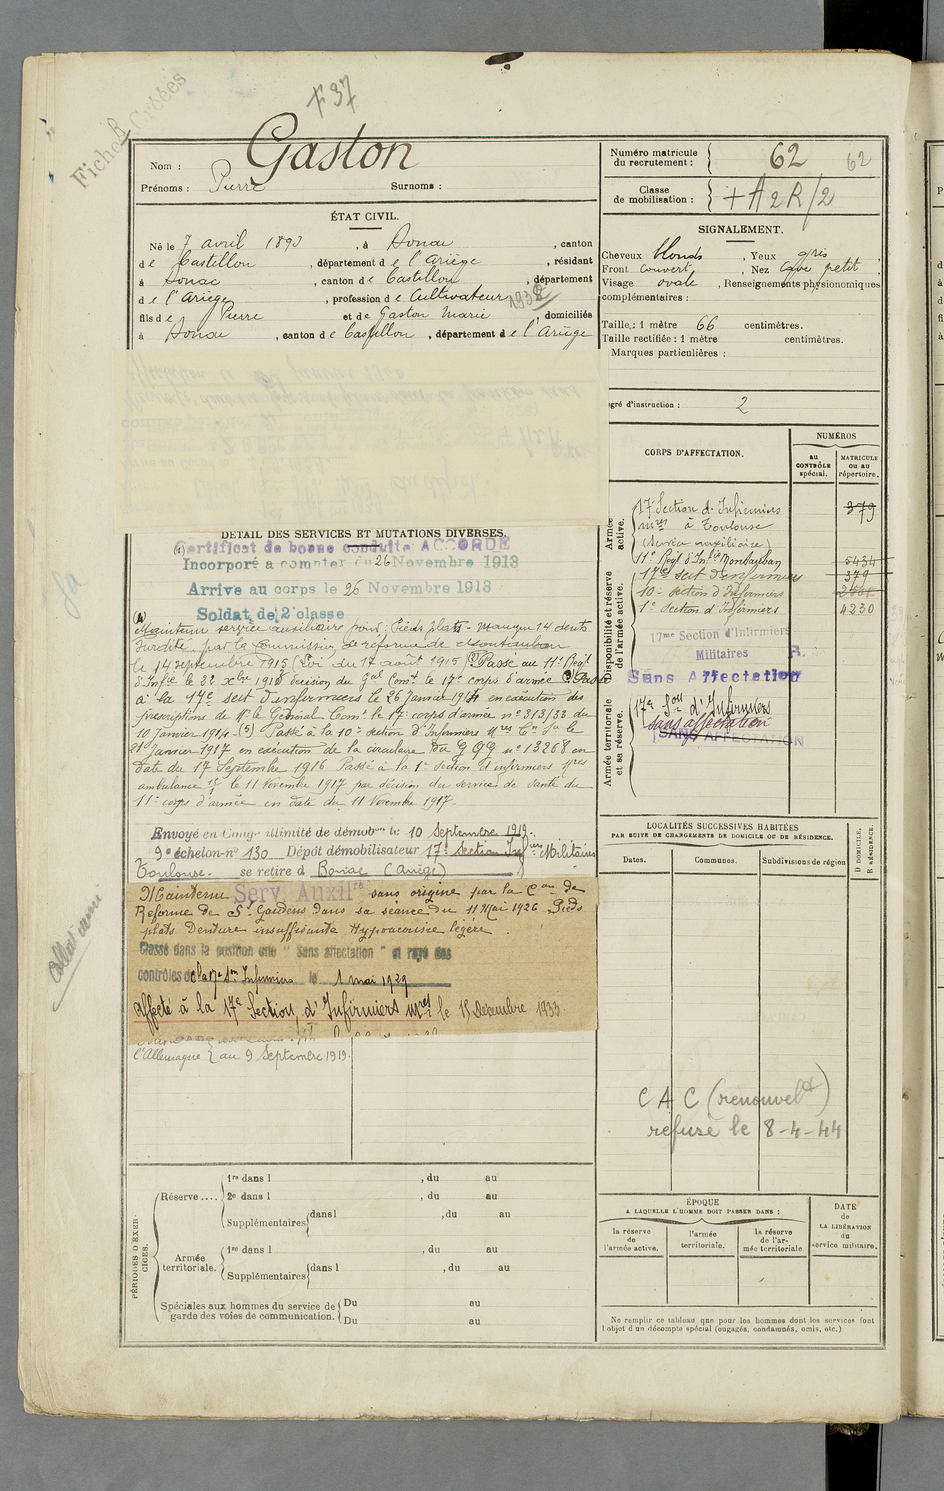 Fiche R Créées
F 37
Nom : Gaston
Prénoms : Pierre Surnoms :
Numéro matricule du recrutement : 62 62
Classe de mobilisation : + A 2 R/2
ÉTAT CIVIL.
Né le 7 avril 1893, à Bonac, canton
de Castillon, département de l'Ariège, résidant
à Bonac, canton de Castillon, département
de l'Ariège, profession de Cultivateur 1932
fils de Pierre et de Gaston Marie, domiciliés
à Bonac, canton de Castillon, département de l'Ariège
SIGNALEMENT.
Cheveux blonds, Yeux gris,
Front couvert, Nez cave petit,
Visage ovale, Renseignements physionomiques
complémentaires :
Taille : 1 mètre 66 centimètres.
Taille rectifiée : 1 mètre centimètres.
Marques particulières :
egré d'instruction : 2
DÉTAIL DES SERVICES ET MUTATIONS DIVERSES.
(1) Certificat de bonne conduite ACCORDÉ
Incorporé à compter du 26 Novembre 1913
Arrivé au corps le 26 Novembre 1913
Soldat de 2e classe
Maintenu service auxiliaire pour : Pieds plats - Manque 14 dents
Surdité par la commission de réforme de Montauban
le 14 septembre 1915 (Loi du 17 août 1915) Passé au 11e Régt
d'Infie le 2 Xbre 191 décision du Gal Comt le 17e corps d'armée Passé
à la 17e sect d'infirmiers le 26 Janvier 191 en exécution des
prescriptions de Mr le Général Comt le 17e corps d'armée no 313/33 du
10 Janvier 191 (5) Passé à la 10e section d'Infirmiers Mres le
21 Janvier 1917 en exécution de la circulaire du G Q G no 13268 en
date du 17 Septembre 1916 Passé à la 1e section d'infirmiers Mres
ambulance le 11 Novembre 1917 par décision du service de santé du
11e corps d'armée en date du 11 Novembre 1917.
Envoyé en Congé illimité de démobon le 10 Septembre 1919.
9e échelon no 130 Dépôt démobilisateur 17e Section Infiers Militaires
Toulouse. se retire à Bonac (Ariège)
Maintenu Serv. Auxilre sans origine par la Con de
Réforme de St Gaudens dans sa séance du 11 Mai 1926 Pieds
plats Denture insuffisante Hypoacousie légère.
Classé dans la position dite "Sans affectation" et rayé des
contrôles de la 17e Son Infirmiers le 1 mai 1929
Affecté à la 17e Section d'Infirmiers mres le 15 Décembre 1933
l'Allemagne } au 9 Septembre 1919.
CORPS D'AFFECTATION.
NUMÉROS
AU CONTRÔLE spécial.
MATRICULE OU AU répertoire.
Armée active.
17e Section d'Infirmiers 379
mres à Toulouse
(Service auxiliaire)
Disponibilité et réserve de l'armée active.
11e Régt d'Infie Montauban 5434
17e sect d'infirmiers 379
10e section d'Infirmiers
1e Section d'Infirmiers 4230
17me Section d'Infirmiers
Militaires R.
Sans Affectation
Armée territoriale et sa réserve.
17e Son d'Infirmiers
sans affectation
SANS AFFECTATION
LOCALITÉS SUCCESSIVES HABITÉES
PAR SUITE DE CHANGEMENTS DE DOMICILE OU DE RÉSIDENCE.
Dates. Communes. Subdivisions de région
D DOMICILE.
R RÉSIDENCE.
C A C (renouvelt)
refusé le 8-4-44
PÉRIODES D'EXERCICES.
Réserve....
1re dans l , du au
2e dans l , du au
Supplémentaires dans l , du au
Armée territoriale.
1re dans l , du au
Supplémentaires dans l , du au
Spéciales aux hommes du service de garde des voies de communication.
Du au
Du au
ÉPOQUE
A LAQUELLE L'HOMME DOIT PASSER DANS :
la réserve de l'armée active.
l'armée territoriale.
la réserve de l'armée territoriale
DATE de LA LIBÉRATION du service militaire.
Ne remplir ce tableau que pour les hommes dont les services font
l'objet d'un décompte spécial (engagés, condamnés, omis, etc.)